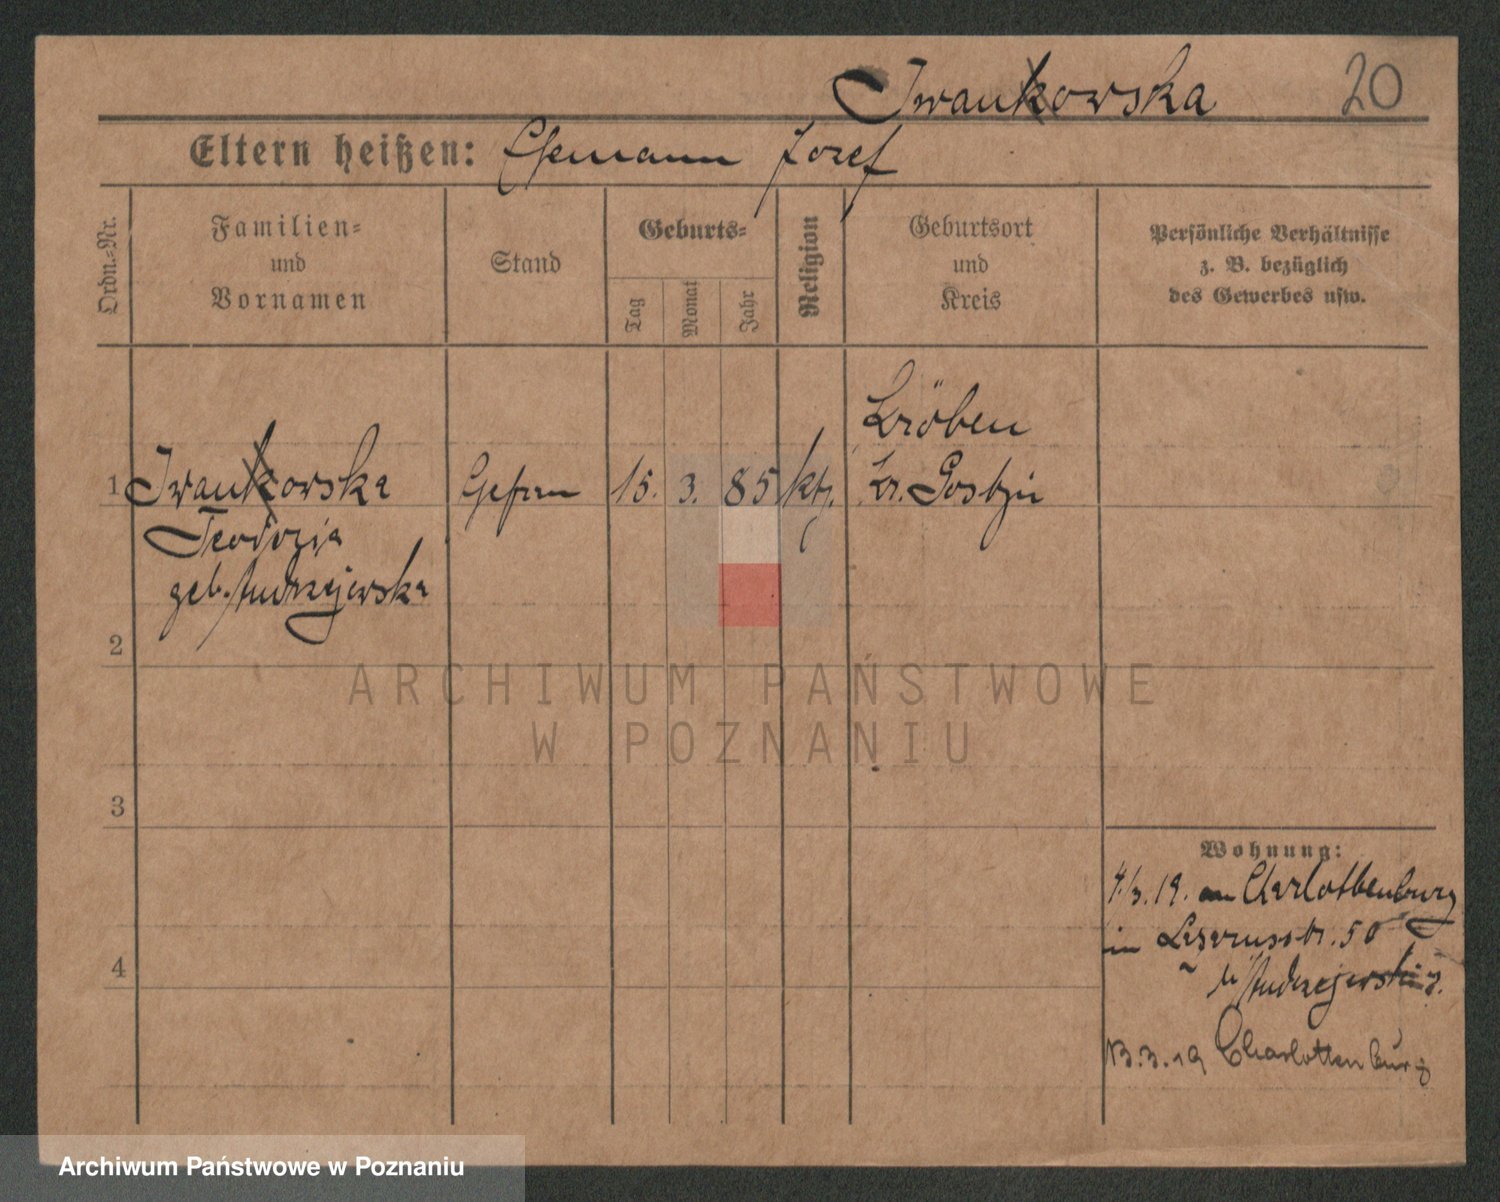 Iwankowska 20
Eltern heißen: Ehemann Jozef
Ordn.-Nr.
Familien-
und
Vornamen
Stand
Geburts-
Tag
Monat
Jahr
Religion
Geburtsort
und
Kreis
Persönliche Verhältnisse
z. B. bezüglich
des Gewerbes usw.
Kröben
1 Iwankowska Gefrau 15. 3. 85 kth. Kr. Gostyn
Teodozja
geb. Andrzejewska
2
ARCHIWUM PAŃSTWOWE
W POZNANIU
3
Wohnung:
4./3. 19. Charlottenburg
in 50
4
Andrzejewski
13.3.19 Charlottenburg
Archiwum Państwowe w Poznaniu